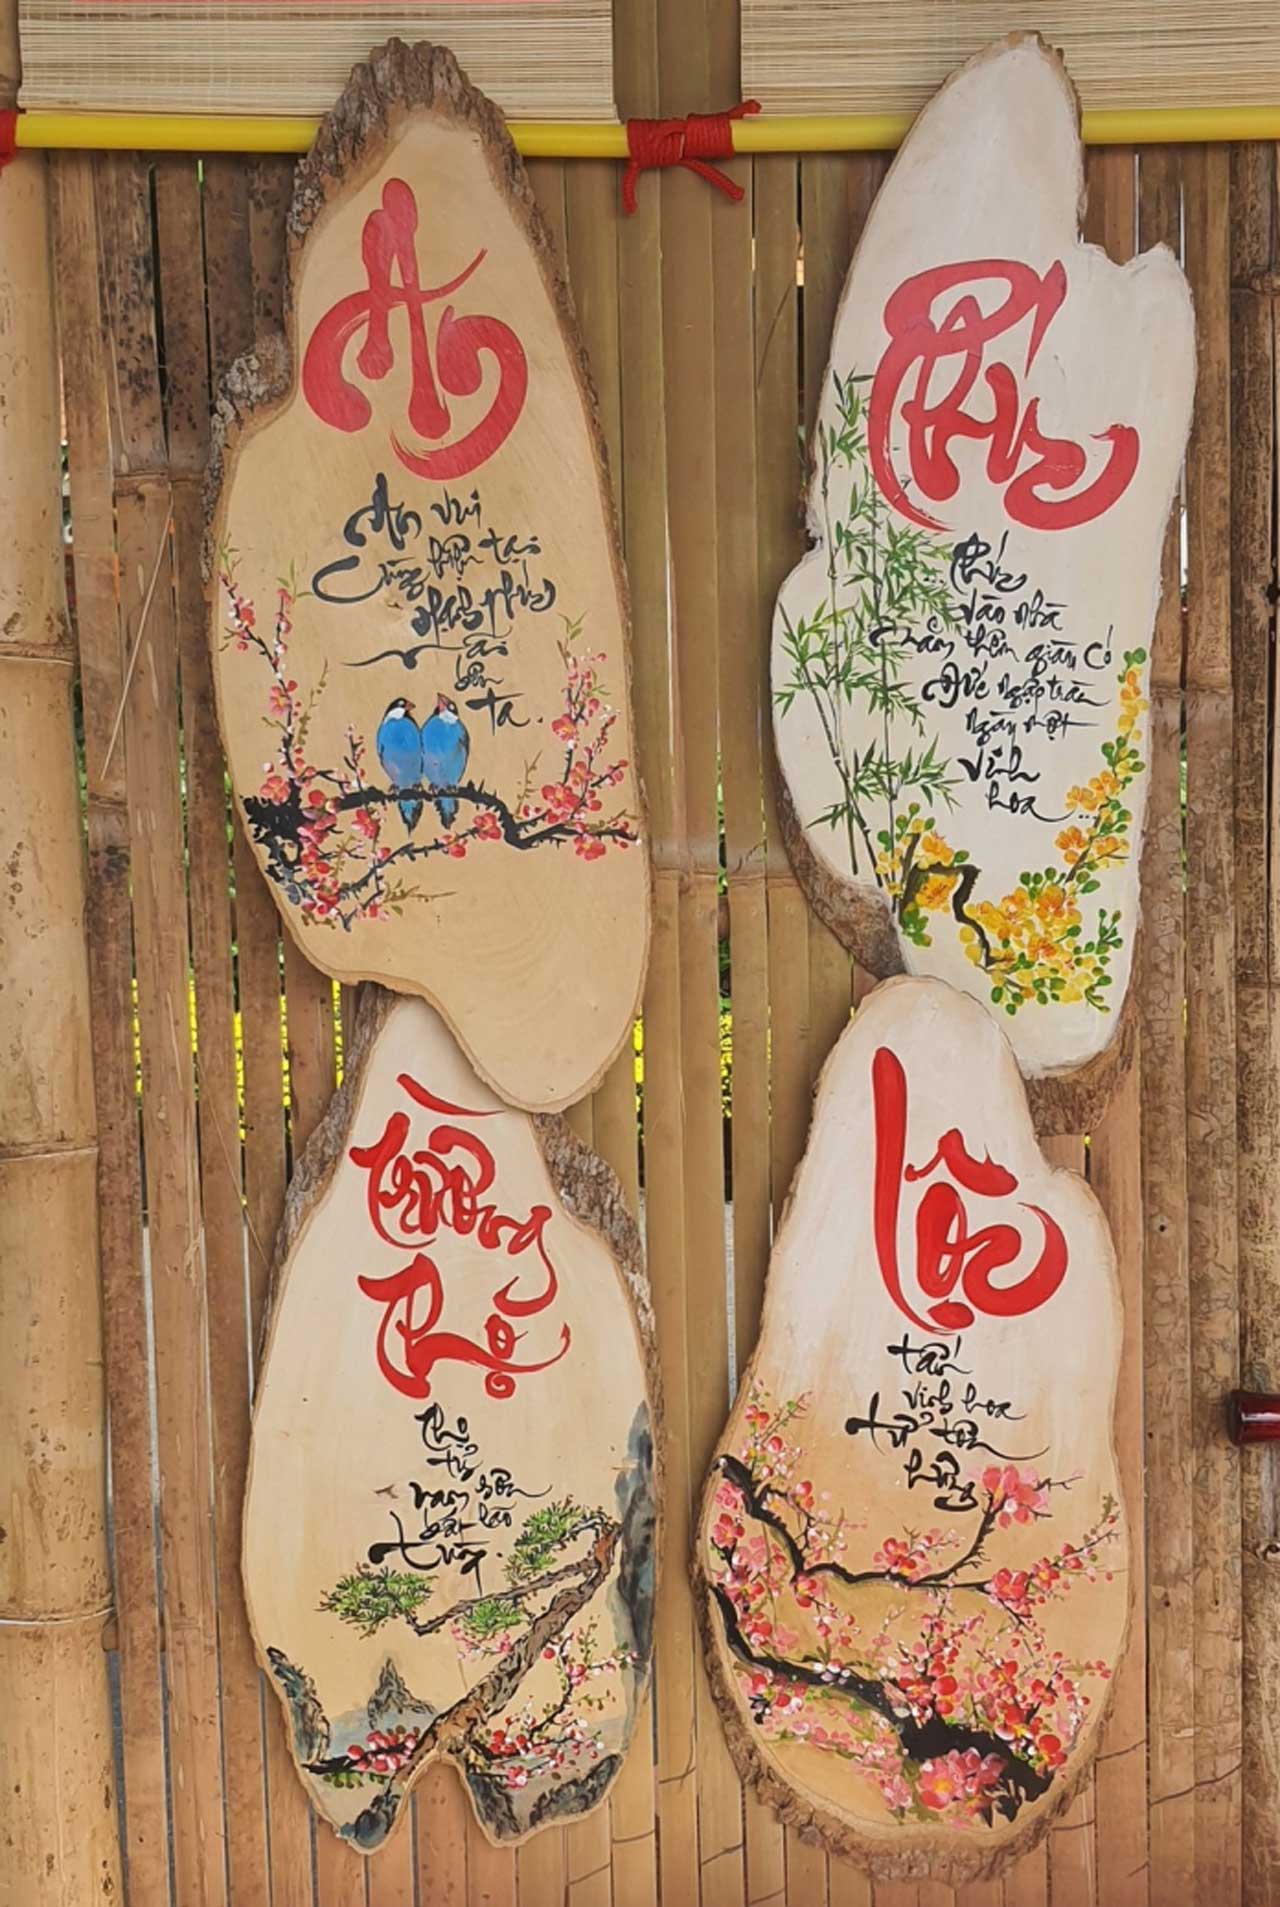 An
An vui
Cùng hiện tại
Hạnh phúc
tại
bên
ta.
Phúc
Phúc
vào nhà
thêm giàu có
Đức ngập tràn
ngày một
vinh
hoa...
Trường
Thọ
Thọ
tỷ
nam sơn
bất lão
tùng.
Lộc
tấn
vinh hoa
tử tôn
hưng